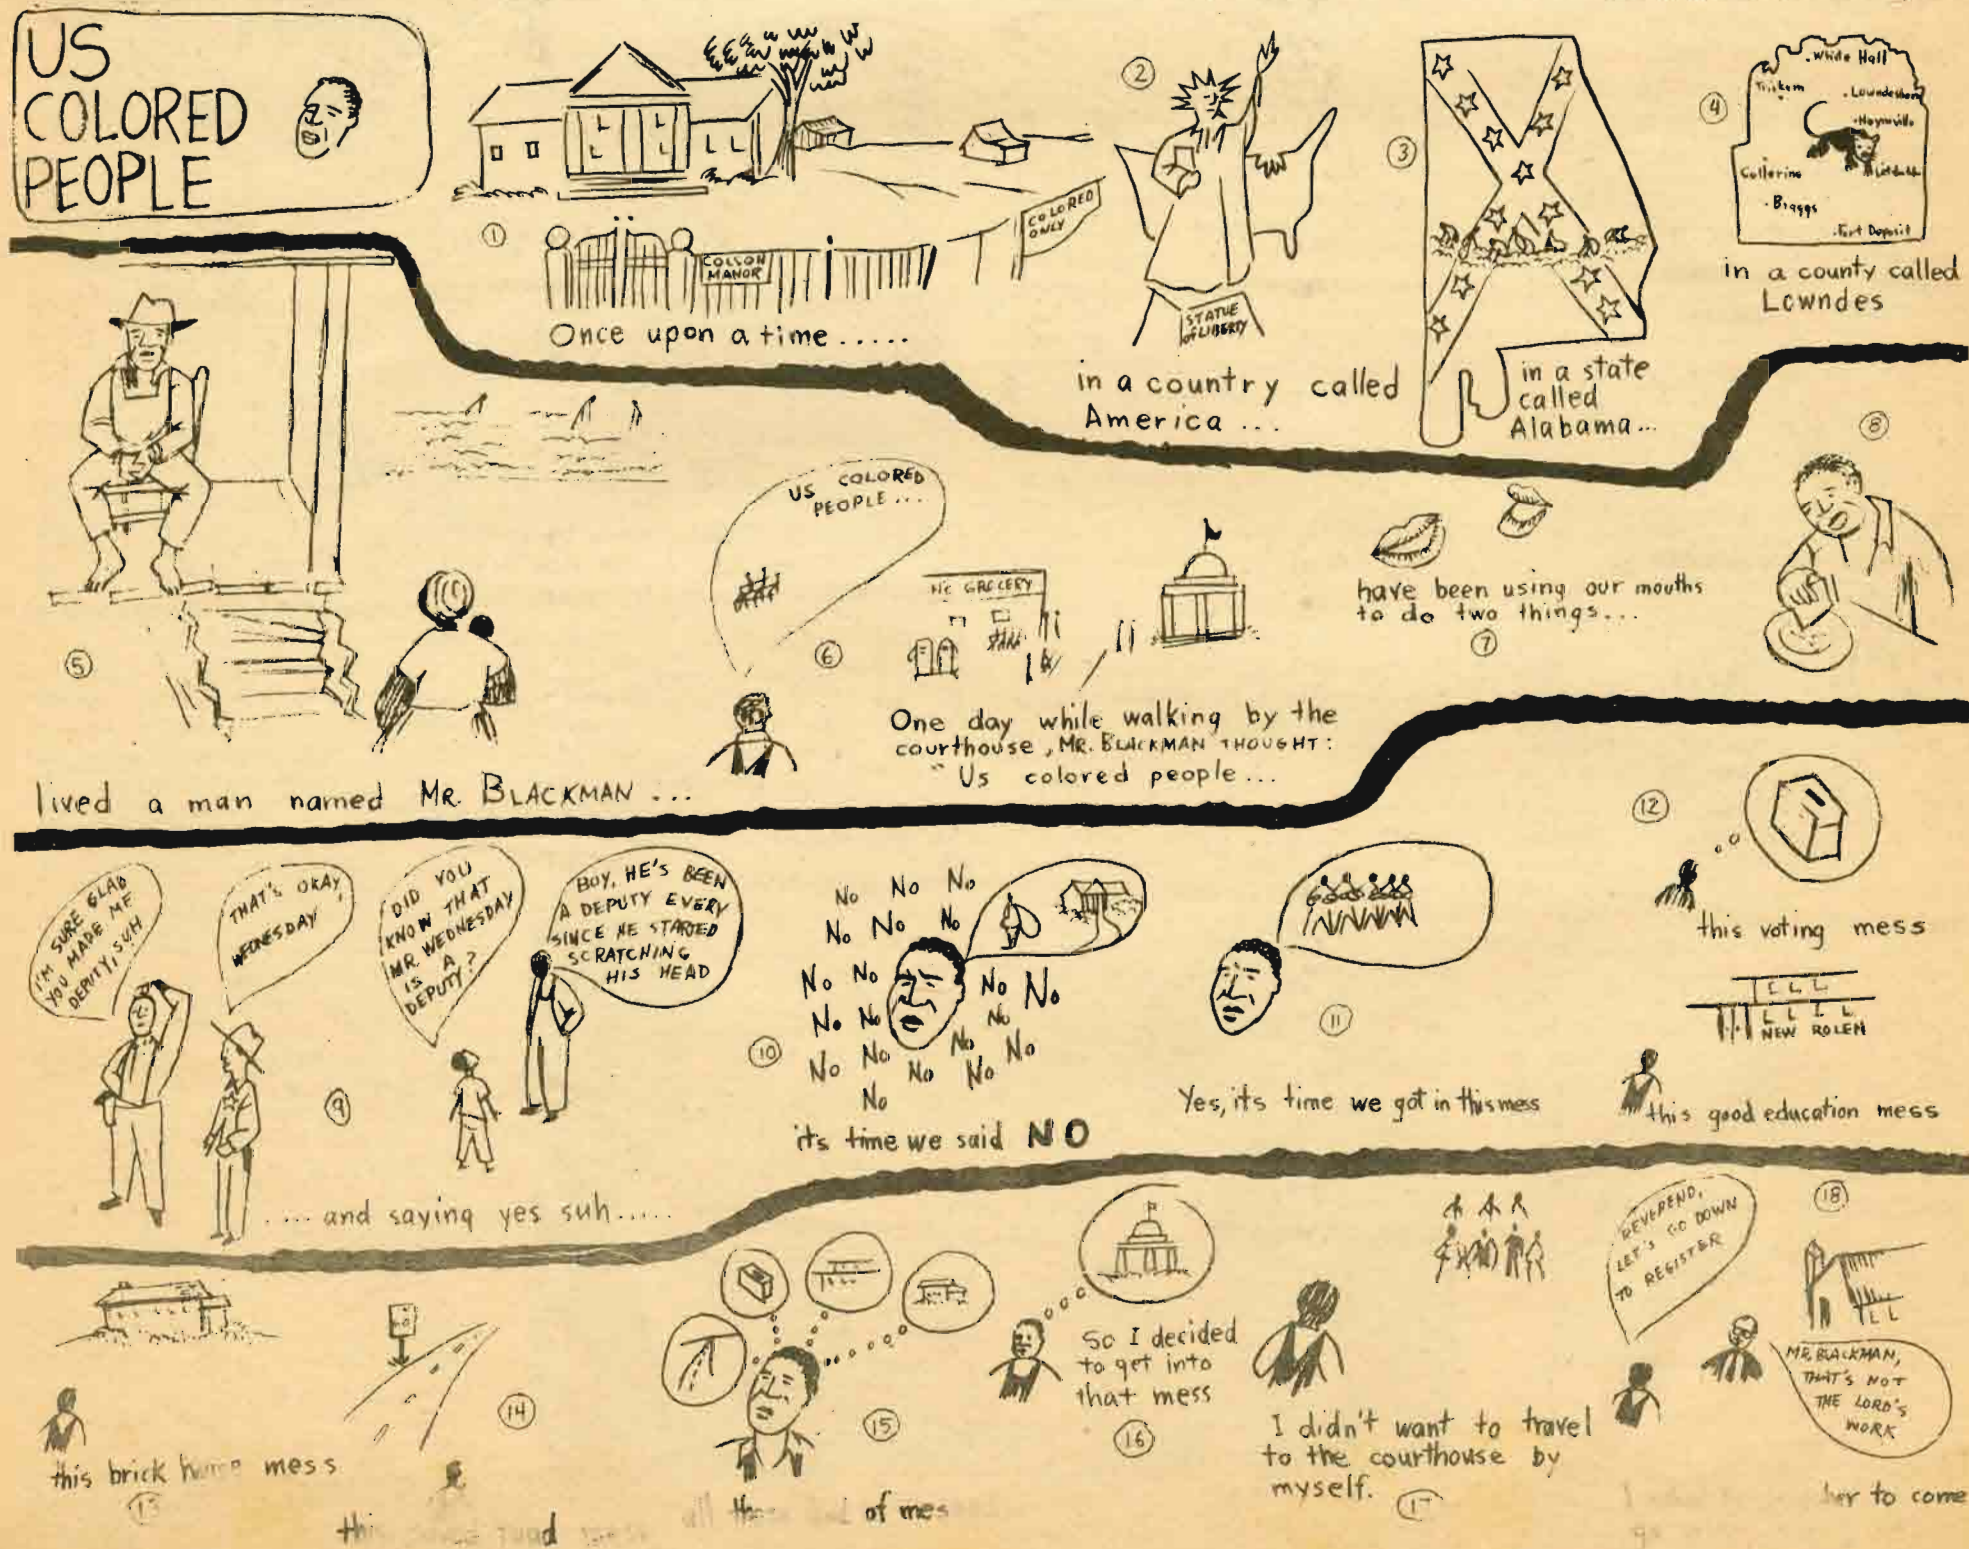 US
COLORED
PEOPLE
①
COLSON
MANOR
COLORED
ONLY
Once upon a time.....
②
STATUE
of LIBERTY
in a country called
America ...
③
in a state
called
Alabama...
④
.White Hall
Trickem
.Lowndesboro
.Hayneville
Collerine
.Braggs
.Fort Deposit
in a county called
Lowndes
⑤
lived a man named MR. BLACKMAN ...
US COLORED
PEOPLE...
⑥
GROCERY
One day while walking by the
courthouse, MR. BLACKMAN THOUGHT:
"Us colored people...
have been using our mouths
to do two things...
⑦
⑧
I'M SURE GLAD
YOU MADE ME
DEPUTY, SUH
THAT'S OKAY,
WEDNESDAY
DID YOU
KNOW THAT
MR. WEDNESDAY
IS A
DEPUTY?
BOY, HE'S BEEN
A DEPUTY EVERY
SINCE HE STARTED
SCRATCHING
HIS HEAD
⑨
.... and saying yes suh.....
No No No
No No No
No No No No
No No No
No No No No
No No
No
⑩
its time we said NO
⑪
Yes, its time we got in this mess
⑫
this voting mess
NEW ROLEN
this good education mess
this brick home mess
⑬
⑭
road
⑮
all of mes
⑯
So I decided
to get into
that mess
I didn't want to travel
to the courthouse by
myself.
⑰
REVEREND,
LET'S GO DOWN
TO REGISTER
⑱
MR. BLACKMAN,
THAT'S NOT
THE LORD'S
WORK
to come